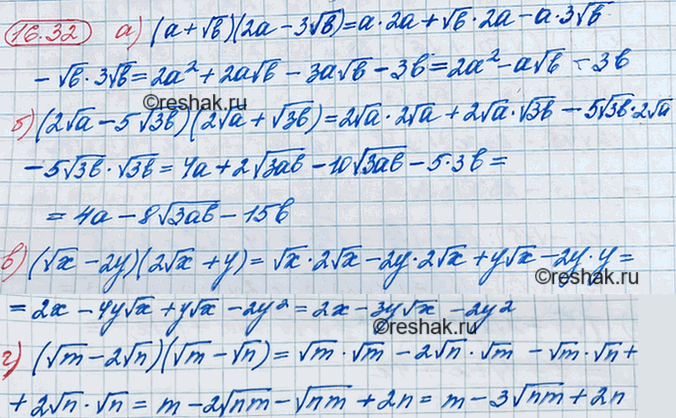 16.32 а) (a+√b)(2a-3√b)=a·2a+√b·2a-a·3√b
-√b·3√b=2a²+2a√b-3a√b-3b=2a²-a√b-3b
©reshak.ru
б) (2√a-5√3b)(2√a+√3b)=2√a·2√a+2√a·√3b-5√3b·2√a
©reshak.ru
-5√3b·√3b=4a+2√3ab-10√3ab-5·3b=
=4a-8√3ab-15b
в) (√x-2y)(2√x+y)=√x·2√x-2y·2√x+y√x-2y·y=
©reshak.ru
=2x-4y√x+y√x-2y²=2x-3y√x-2y²
©reshak.ru
г) (√m-2√n)(√m-√n)=√m·√m-2√n·√m-√m·√n+
+2√n·√n=m-2√nm-√nm+2n=m-3√nm+2n